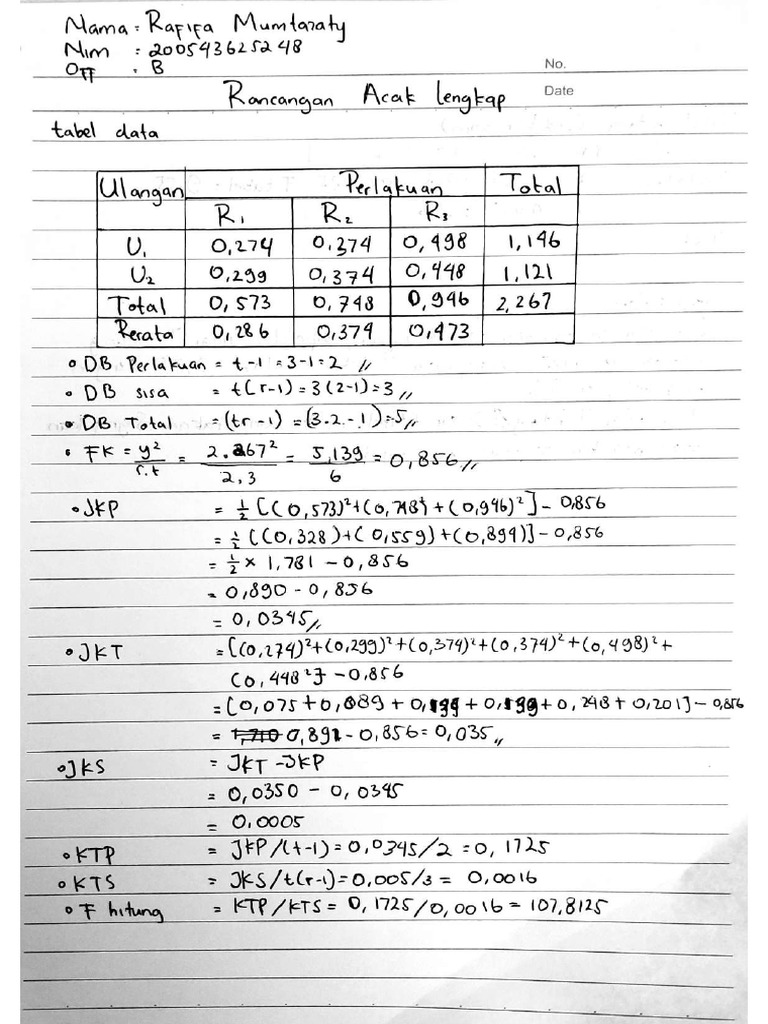 Nama : Rafifa Mumtazaty
Nim : 200543625248
Off : B
No.
Rancangan Acak lengkap
Date
tabel data
Ulangan Perlakuan Total
R1 R2 R3
U1 0,274 0,374 0,498 1,146
U2 0,299 0,374 0,448 1,121
Total 0,573 0,748 0,946 2,267
Rerata 0,286 0,374 0,473
• DB Perlakuan = t-1 = 3-1 = 2 //
• DB sisa = t(r-1) = 3(2-1) = 3 //
• DB Total = (tr-1) = (3.2-1) = 5 //
• FK = y²/r.t = 2.267²/2,3 = 5,139/6 = 0,856 //
• JKP = ½ [(0,573)²+(0,748)²+(0,946)²] - 0,856
= ½ [(0,328)+(0,559)+(0,894)] - 0,856
= ½ × 1,781 - 0,856
= 0,890 - 0,856
= 0,0345 //
• JKT = [(0,274)²+(0,299)²+(0,374)²+(0,374)²+(0,498)²+
(0,448²] - 0,856
= [0,075+0,089+0,139+0,139+0,248+0,201] - 0,856
= 0,891 - 0,856 = 0,035 //
• JKS = JKT - JKP
= 0,0350 - 0,0345
= 0.0005
• KTP = JKP/(t-1) = 0,0345/2 = 0,1725
• KTS = JKS/t(r-1) = 0,005/3 = 0,0016
• F hitung = KTP/KTS = 0,1725/0,0016 = 107,8125